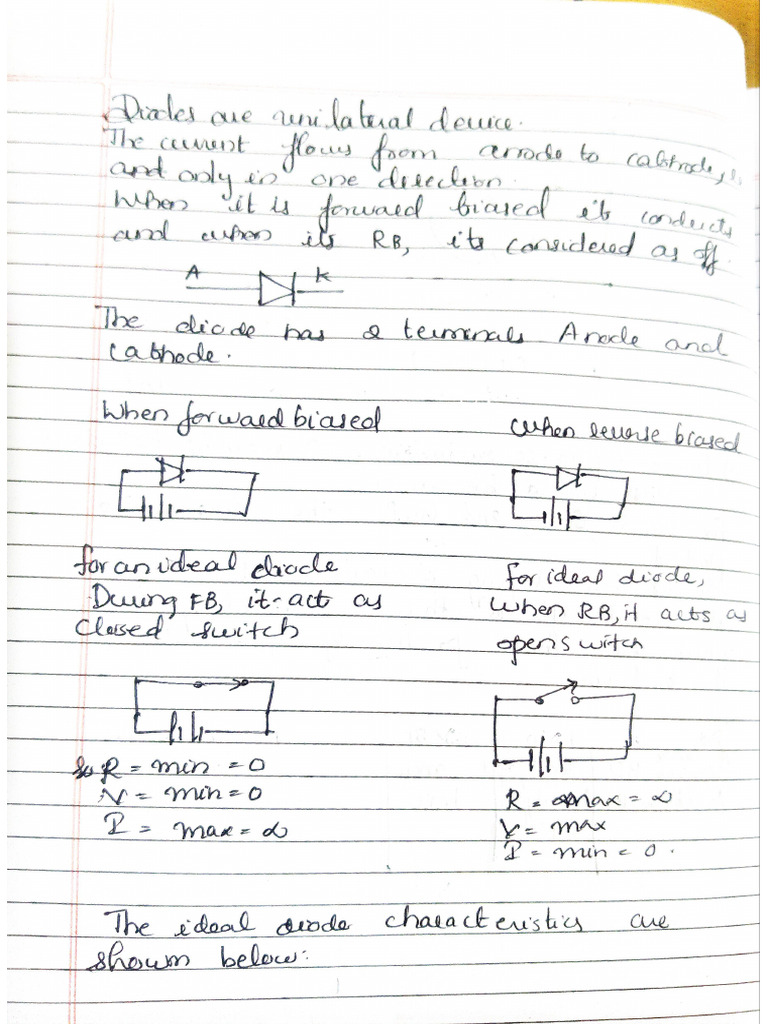 Diodes are unilateral device.
The current flows from anode to cathode,
and only in one direction.
When it is forward biased it conducts
and when its RB, its considered as off.
A K
The diode has 2 terminals Anode and
Cathode.
When forward biased
When reverse biased
for an ideal diode
During FB, it act as
Closed switch
for ideal diode,
When RB, it acts as
open switch
R = min = 0
V = min = 0
I = max = ∞
R = max = ∞
V = max
I = min = 0.
The ideal diode characteristics are
shown below: